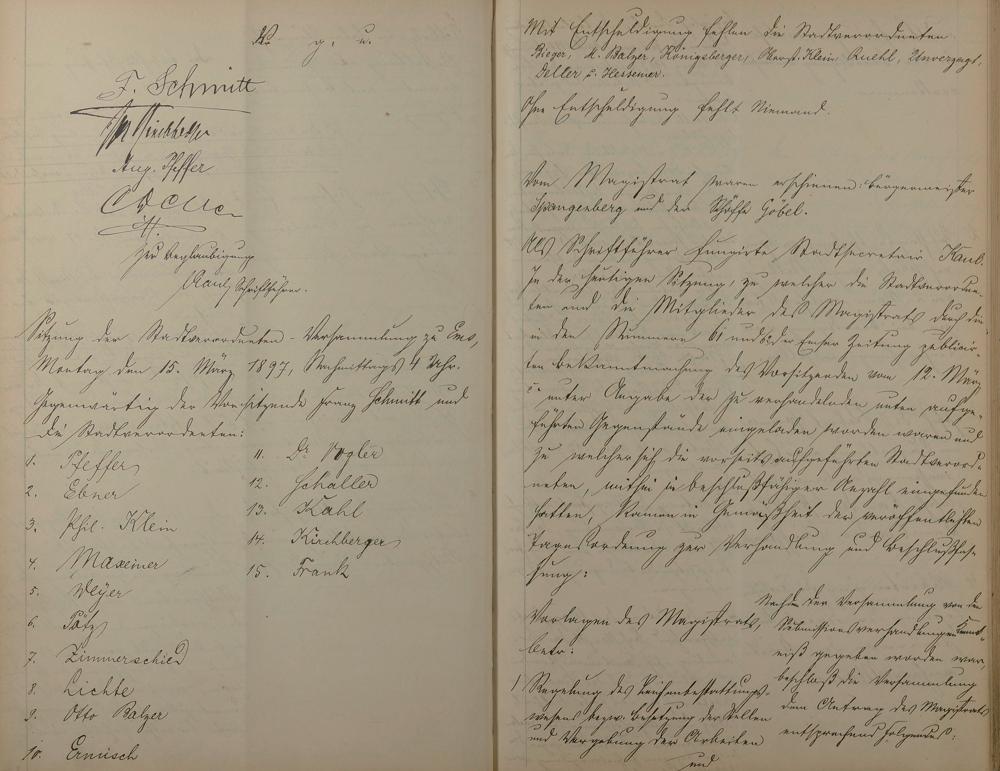 V. g. u.
F. Schmitt
Kirchberger
Aug. Pfeffer
Zur Beglaubigung
Kaul, Schriftführer.
Sitzung der Stadtverordneten-Versammlung zu Ems,
Montag den 15. März 1897, Nachmittags 4 Uhr.
Gegenwärtig der Vorsitzende Franz Schmitt und
die Stadtverordneten:
1. Pfeffer
2. Ebner
3. Phil. Klein
4. Maxeiner
5. Weyer
6. Pötz
7. Zimmerschied
8. Lichte
9. Otto Balzer
10. Ermisch
11. Dr. Vogler
12. Schaller
13. Kahl
14. Kirchberger
15. Frank
Mit Entschuldigung fehlen die Stadtverordneten
Rieger, A. Balzer, Königsberger, Klein, Ruehl, Unverzagt,
Heller u. Hessemer.
Ohne Entschuldigung fehlt Niemand.
Vom Magistrat waren erschienen: Bürgermeister
Spangenberg und der Schöffe Göbel.
Als Schriftführer fungirte Stadtsecretair Kaul.
In der heutigen Sitzung, zu welcher die Stadtverordne-
ten und die Mitglieder des Magistrats durch die
in den Nummern 61 und der Emser Zeitung publicir-
ten Bekanntmachung des Vorsitzenden vom 12. März
unter Angabe der zu verhandelnden unten aufge-
führten Gegenstände eingeladen worden waren und
zu welcher sich die vorseits aufgeführten Stadtverord-
neten, mithin in beschlußfähiger Anzahl eingefunden
hatten, kamen in Gemäßheit der veröffentlichten
Tagesordnung zur Verhandlung und Beschlußfas-
sung:
Vorlagen des Magistrats,
betr:
1 Regelung des Leichenbestattungs-
wesens bezw. Besetzung der Stellen
und Vergebung der Arbeiten
Nachdem der Versammlung von den
Submissionsverhandlungen Kennt-
niß gegeben worden war,
beschloß die Versammlung
dem Antrag des Magistrats
entsprechend Folgendes:
und